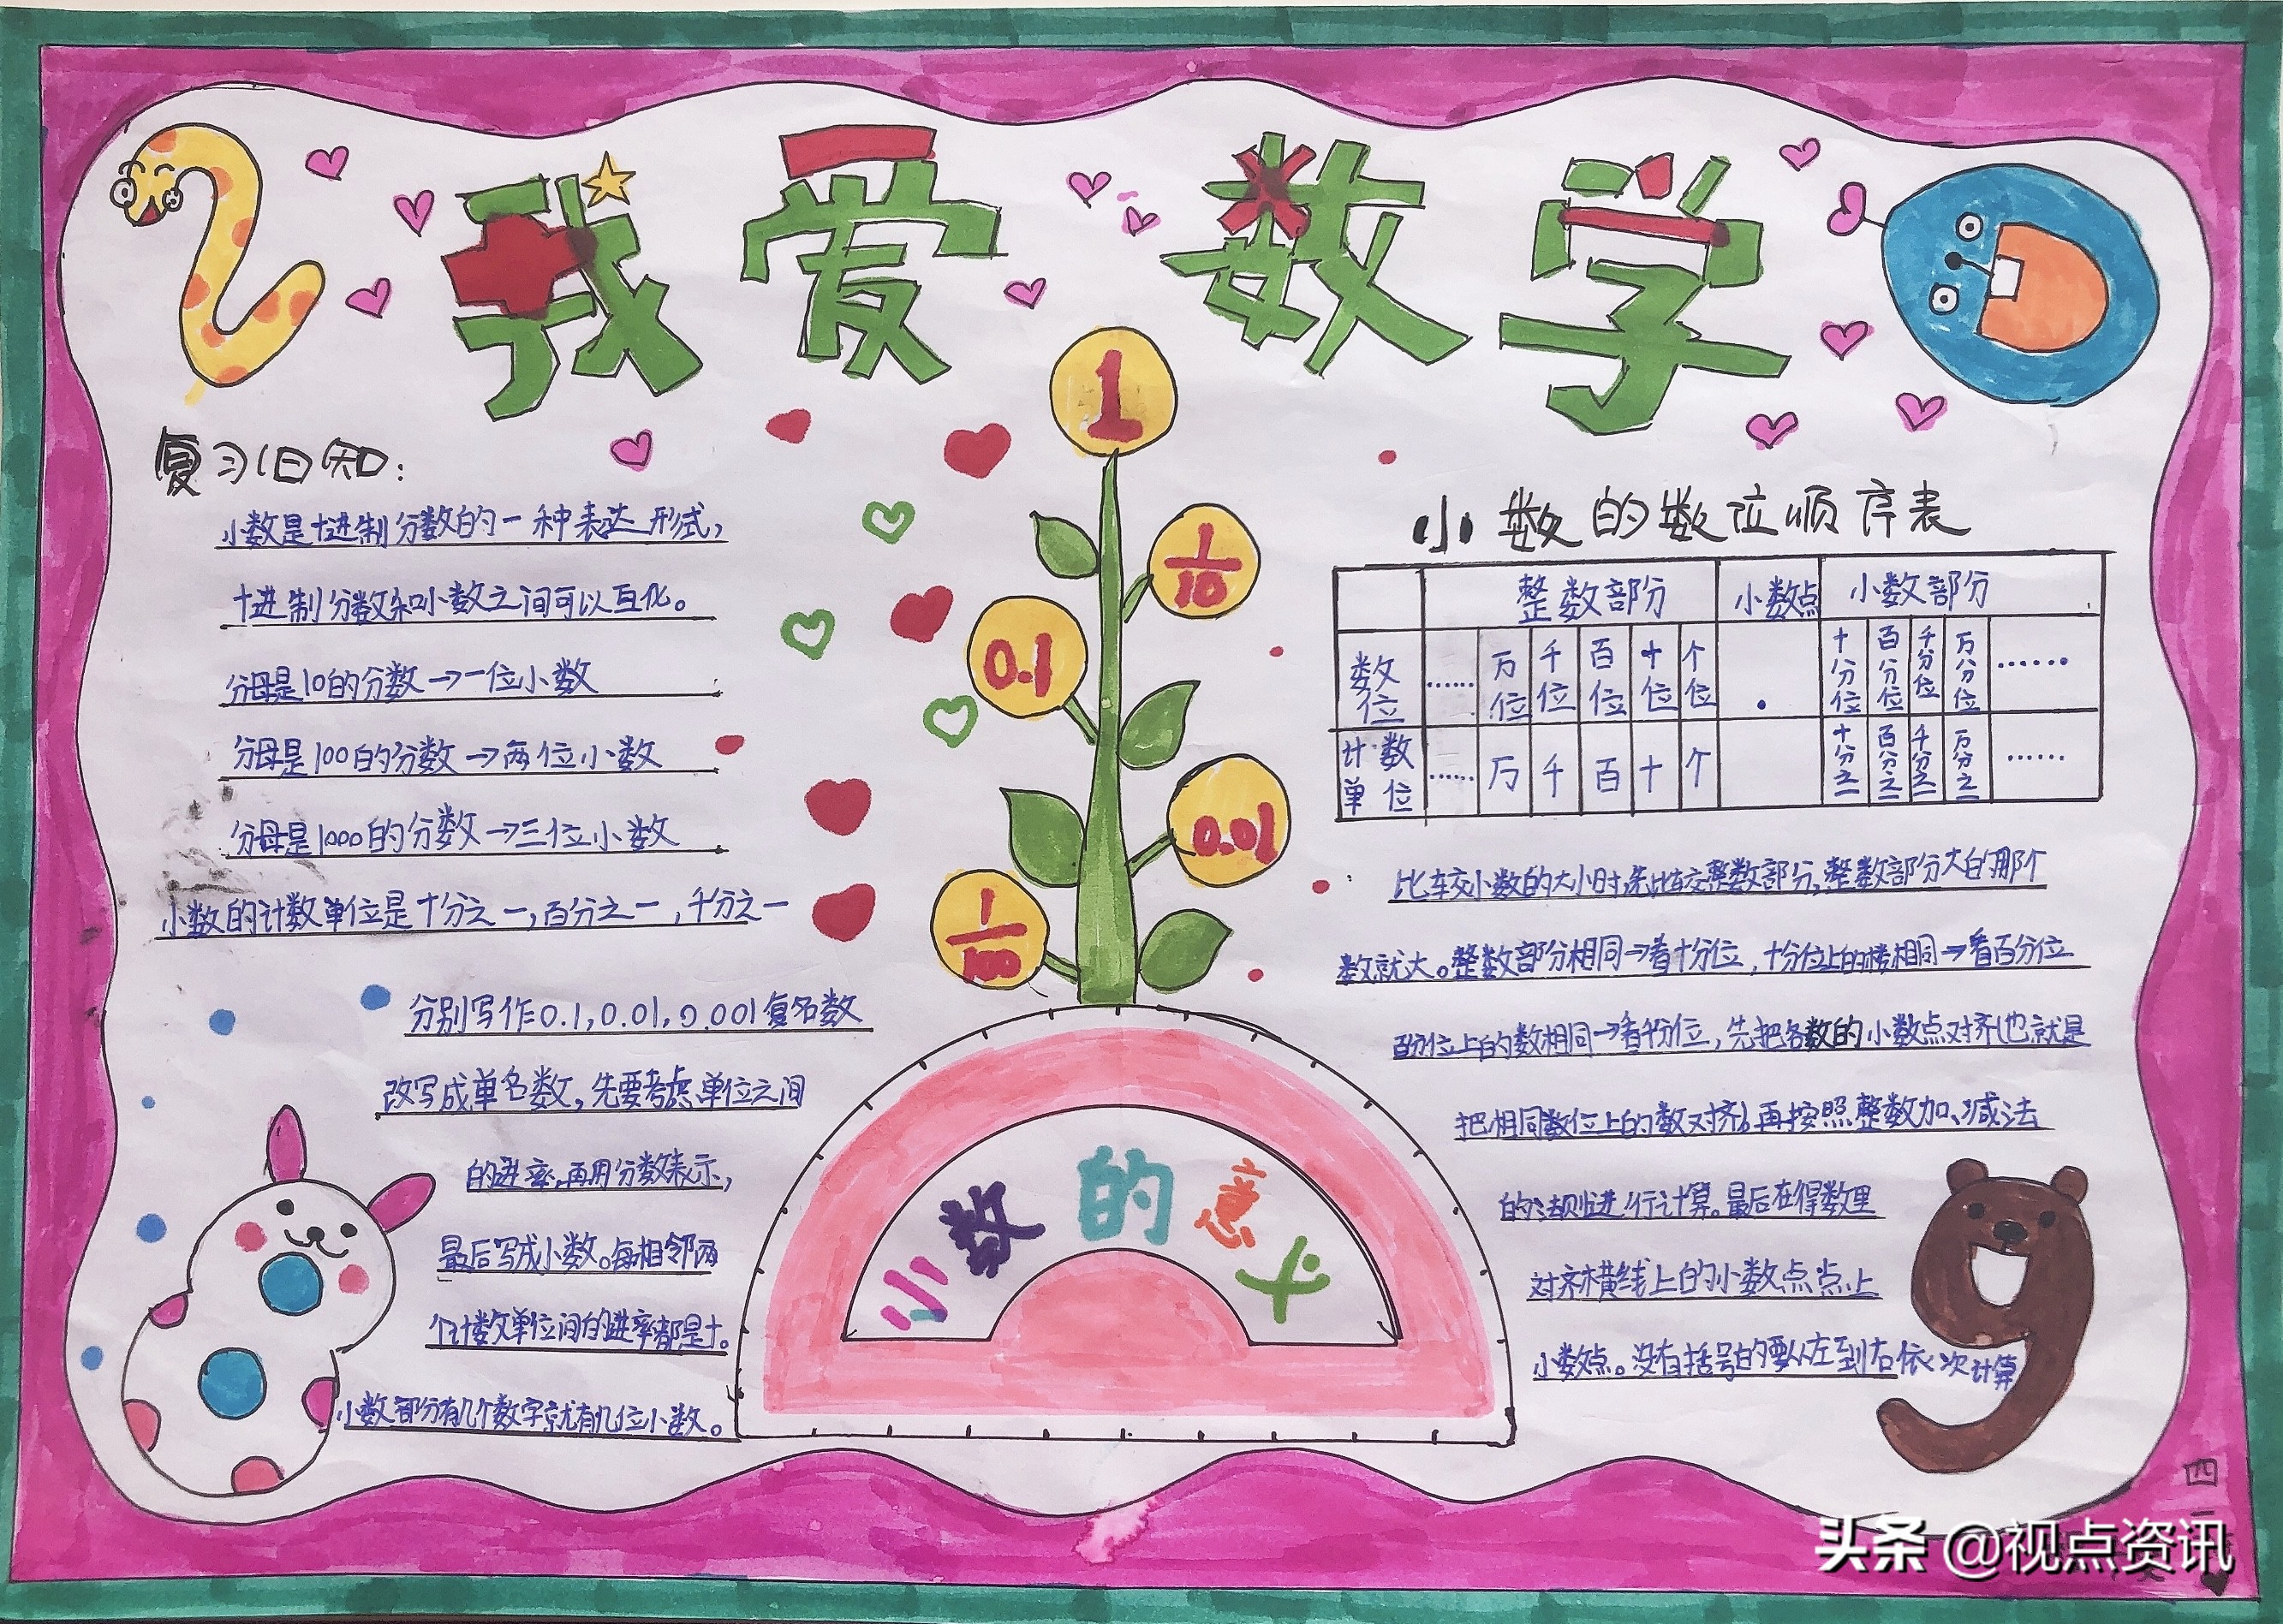 我爱数学
复习旧知：
小数是十进制分数的一种表达形式，
十进制分数和小数之间可以互化。
分母是10的分数→一位小数
分母是100的分数→两位小数
分母是1000的分数→三位小数
小数的计数单位是十分之一，百分之一，千分之一
分别写作0.1，0.01，0.001复名数
改写成单名数，先要考虑单位之间
的进率，再用分数表示，
最后写成小数。每相邻两
个计数单位间的进率都是十。
小数部分有几个数字就有几位小数。
1
1/10
0.1
0.01
1/100
小数的意义
小数的数位顺序表
整数部分 小数点 小数部分
数位 …… 万位 千位 百位 十位 个位 . 十分位 百分位 千分位 万分位 ……
计数单位 …… 万 千 百 十 个 十分之一 百分之一 千分之一 万分之一 ……
比较小数的大小时，先比较整数部分，整数部分大的那个
数就大。整数部分相同→看十分位，十分位上的数相同→看百分位
百分位上的数相同→看千分位，先把各数的小数点对齐（也就是
把相同数位上的数对齐）再按照整数加、减法
的法则进行计算。最后在得数里
对齐横线上的小数点点上
小数点。没有括号的要从左到右依次计算
四
头条 @视点资讯